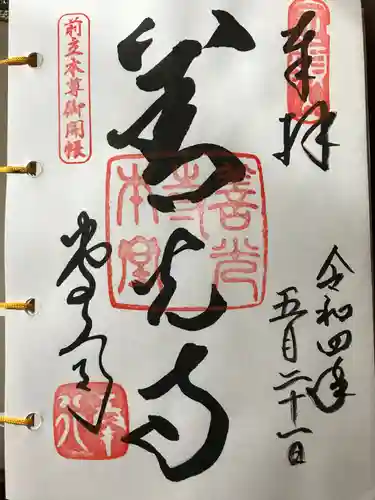 奉拝
善光寺
善光寺本堂
前立本尊御開帳
令和四年
五月二十一日